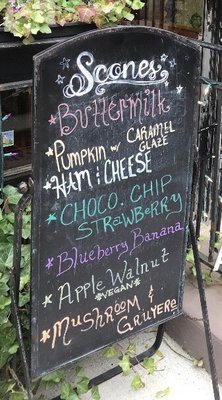 Scones
Buttermilk
Pumpkin w/ Caramel
Glaze
Ham & Cheese
Choco. Chip
Strawberry
Blueberry Banana
Apple Walnut
*Vegan*
Mushroom &
Gruyere